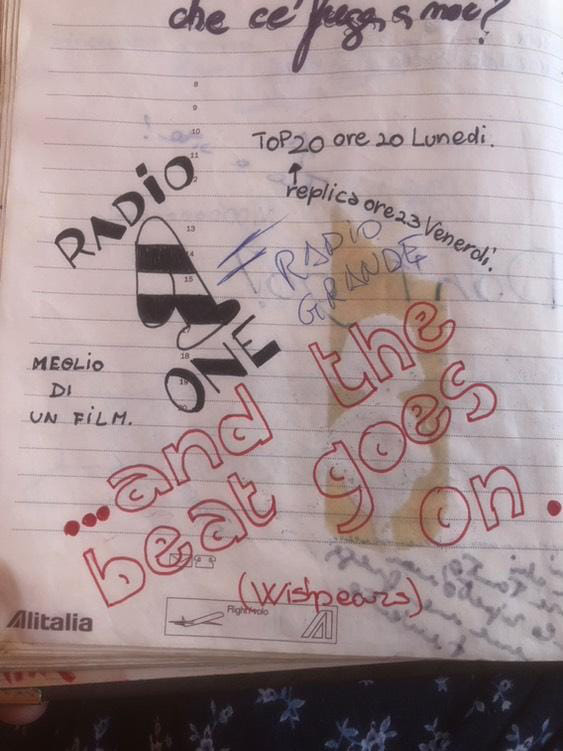 che ce' fuga, a noc?
8
9
10
11
12
13
14
15
17
18
19
TOP20 ore 20 Lunedì.
replica ore 23 Venerdì.
RADIO
ONE
RADIO
GRANDE
MEGLIO
DI
UN FILM.
...and the
beat goes
on.
(Wishpears)
Alitalia
Flight/volo